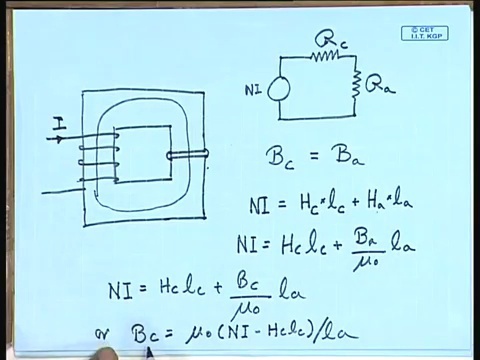 © CET
I.I.T. KGP
R_c
I
NI
R_a
B_c = B_a
NI = H_c * l_c + H_a * l_a
NI = H_c l_c + B_a/μ_0 l_a
NI = H_c l_c + B_c/μ_0 l_a
or B_c = μ_0 (NI - H_c l_c) / l_a